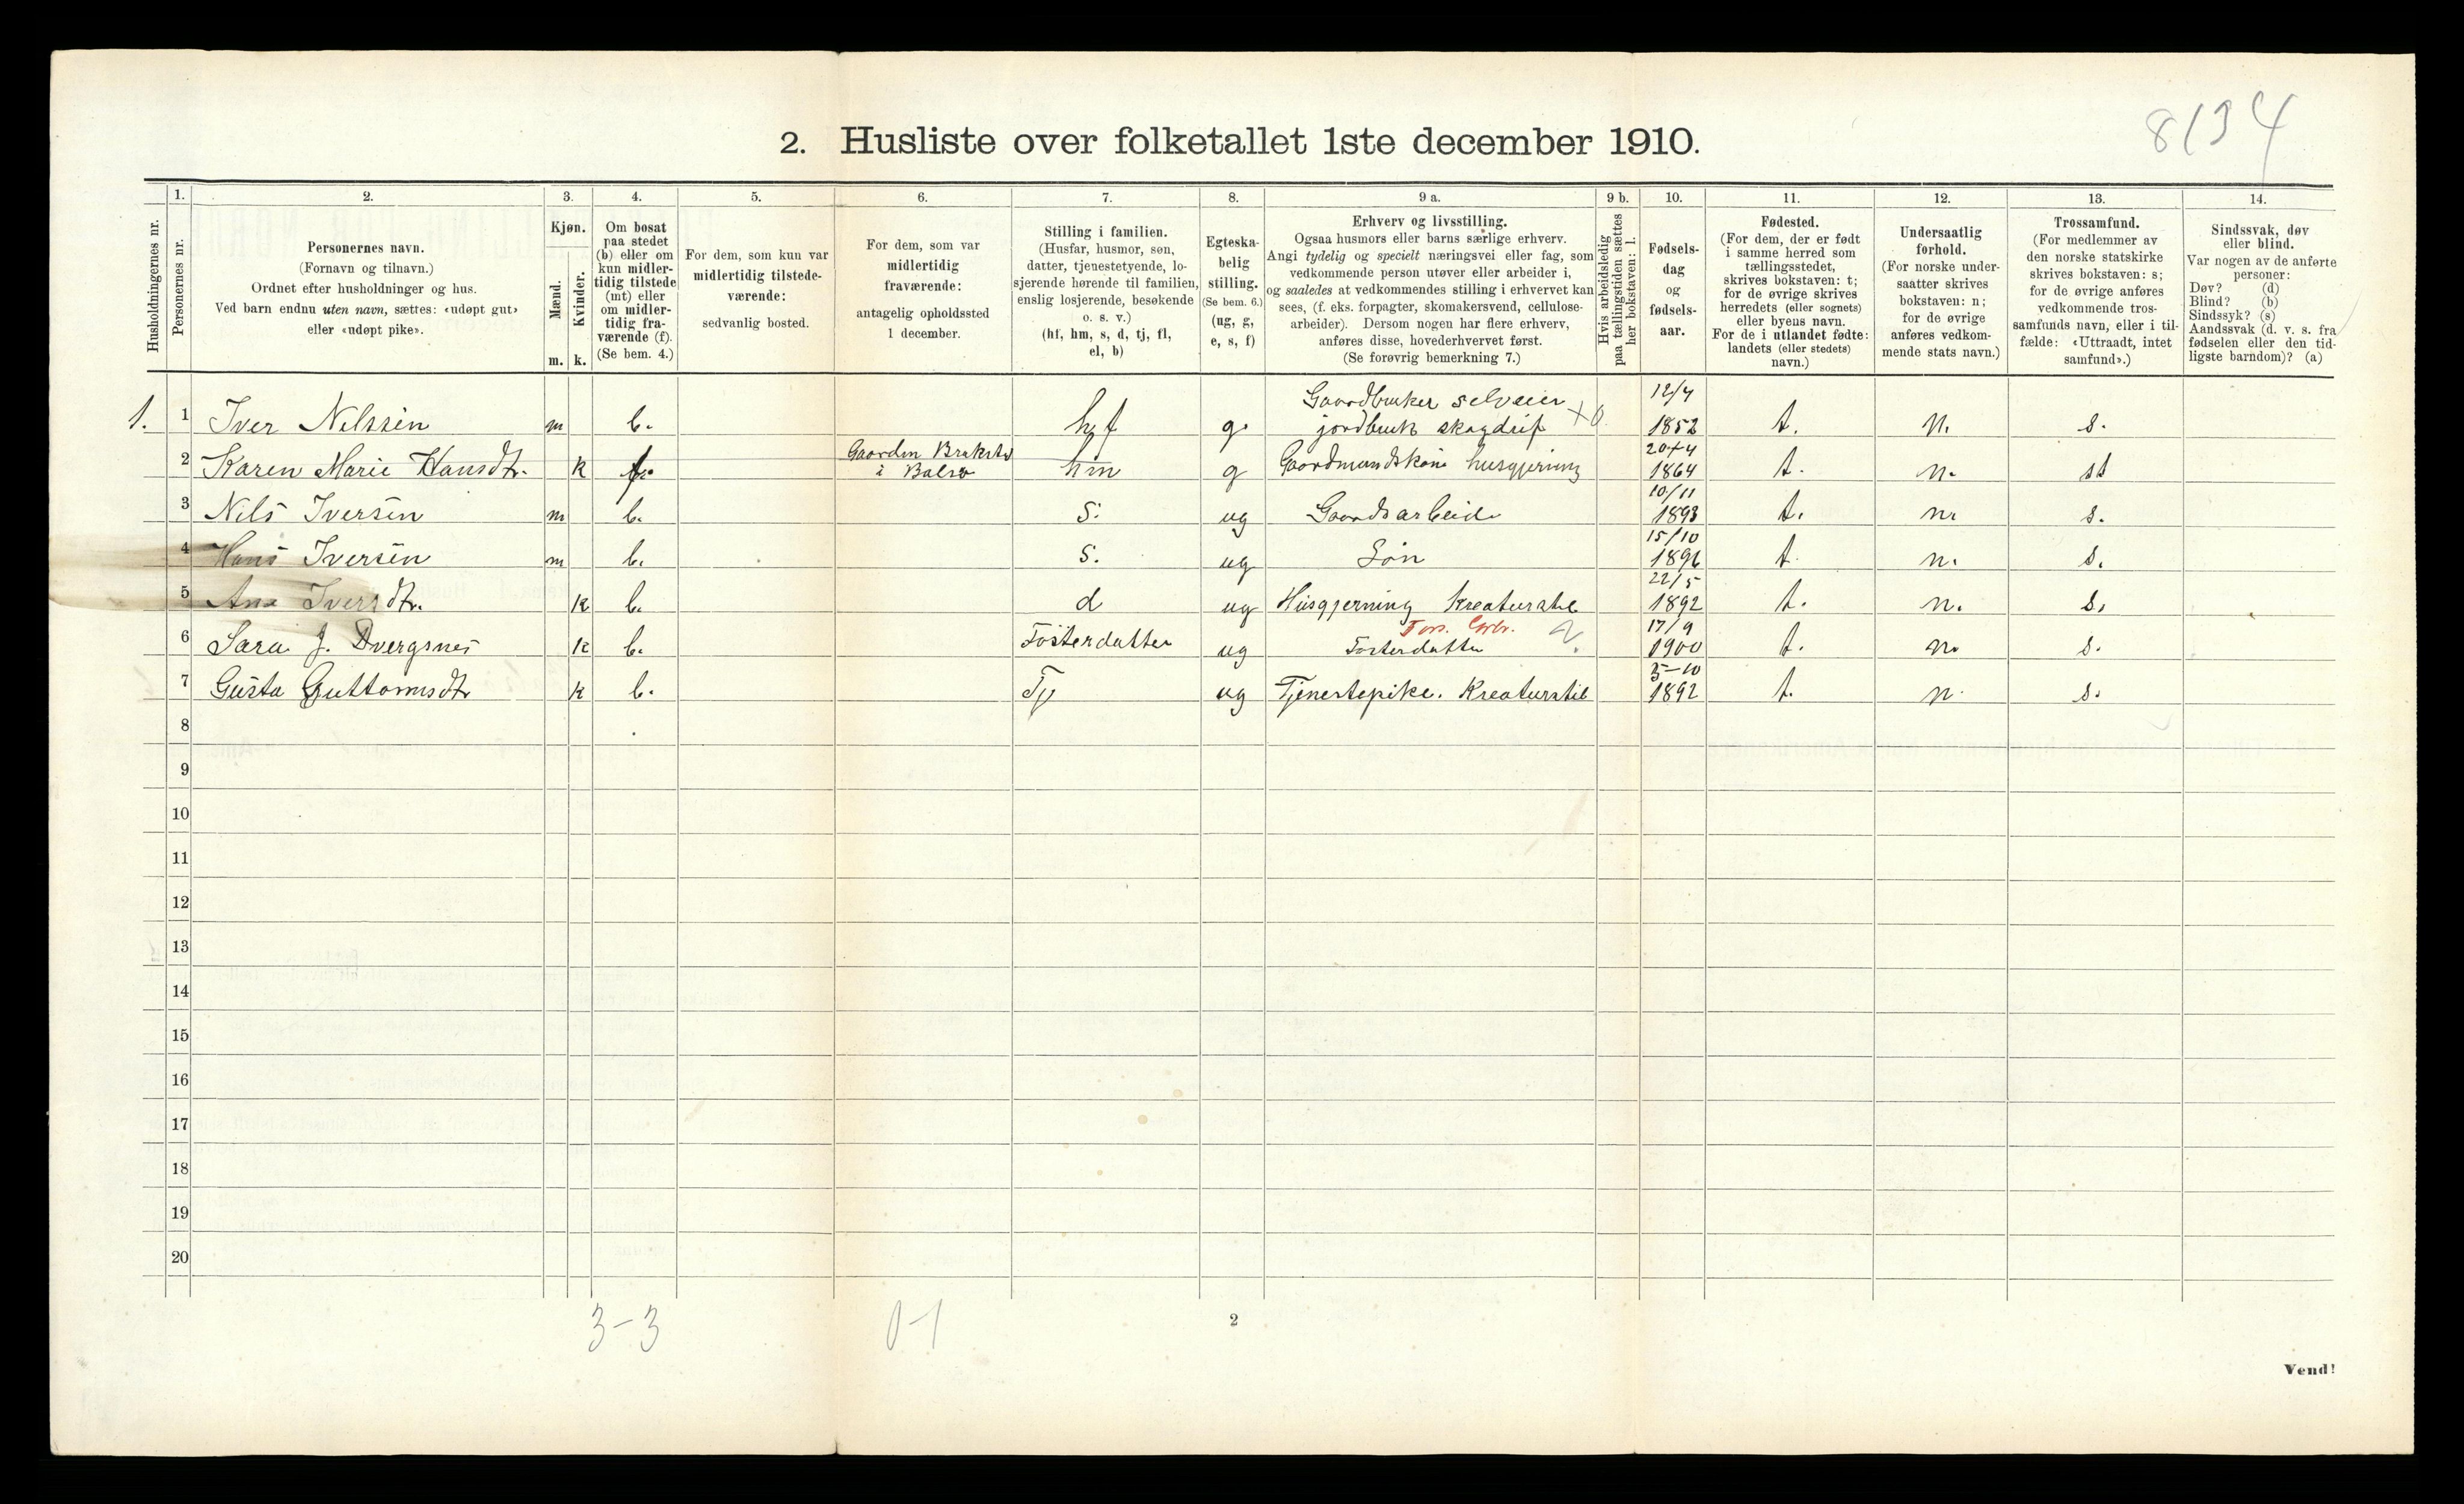 8134
2. Husliste over folketallet 1ste december 1910.
Husholdningernes nr.
1.
Personernes nr.
2.
Personernes navn.
(Fornavn og tilnavn.)
Ordnet efter husholdninger og hus.
Ved barn endnu uten navn, sættes: «udøpt gut»
eller «udøpt pike».
3.
Kjøn.
Mænd.
Kvinder.
m. k.
4.
Om bosat
paa stedet
(b) eller om
kun midler-
tidig tilstede
(mt) eller
om midler-
tidig fra-
værende (f).
(Se bem. 4.)
5.
For dem, som kun var
midlertidig tilstede-
værende:
sedvanlig bosted.
6.
For dem, som var
midlertidig
fraværende:
antagelig opholdssted
1 december.
7.
Stilling i familien.
(Husfar, husmor, søn,
datter, tjenestetyende, lo-
sjerende hørende til familien,
enslig losjerende, besøkende
o. s. v.)
(hf, hm, s, d, tj, fl,
el, b)
8.
Egteska-
belig
stilling.
(Se bem. 6.)
(ug, g,
e, s, f)
9 a.
Erhverv og livsstilling.
Ogsaa husmors eller barns særlige erhverv.
Angi tydelig og specielt næringsvei eller fag, som
vedkommende person utøver eller arbeider i,
og saaledes at vedkommendes stilling i erhvervet kan
sees, (f. eks. forpagter, skomakersvend, cellulose-
arbeider). Dersom nogen har flere erhverv,
anføres disse, hovederhvervet først.
(Se forøvrig bemerkning 7.)
9 b.
Hvis arbeidsledig
paa tællingstiden sættes
her bokstaven: l.
10.
Fødsels-
dag
og
fødsels-
aar.
11.
Fødested.
(For dem, der er født
i samme herred som
tællingsstedet,
skrives bokstaven: t;
for de øvrige skrives
herredets (eller sognets)
eller byens navn.
For de i utlandet fødte:
landets (eller stedets)
navn.)
12.
Undersaatlig
forhold.
(For norske under-
saatter skrives
bokstaven: n;
for de øvrige
anføres vedkom-
mende stats navn.)
13.
Trossamfund.
(For medlemmer av
den norske statskirke
skrives bokstaven: s;
for de øvrige anføres
vedkommende tros-
samfunds navn, eller i til-
fælde: «Uttraadt, intet
samfund».)
14.
Sindssvak, døv
eller blind.
Var nogen av de anførte
personer:
Døv? (d)
Blind? (b)
Sindssyk? (s)
Aandssvak (d. v. s. fra
fødselen eller den tid-
ligste barndom)? (a)
1. 1 Iver Nilssen m b. hf g. Gaardbruker selveier jordbruk skogdrif 12/4 1852 t. n. s.
2 Karen Marie Hansdtr. k f. Gaarden i Balsø hm g Gaardmandskone husgjerning 20/4 1864 t. n. st
3 Nils Iversen m b. s. ug Gaardsarbeide 10/11 1893 t. n. s.
4 Hans Iversen m b. s. ug Søn 15/10 1896 t. n. s.
5 Ana Iversdtr. k b. d ug Husgjerning Kreaturstel 22/5 1892 t. n. s.
6 Sara J. Dvergsnes k b. Fosterdatter ug Fosterdatter 17/9 1900 t. n. s.
7 Gusta Guttormsdtr k b. Tj ug Tjenestepike. Kreaturstel 5-10 1892 t. n. s.
8
9
10
11
12
13
14
15
16
17
18
19
20
3-3
0-1
2
Vend!